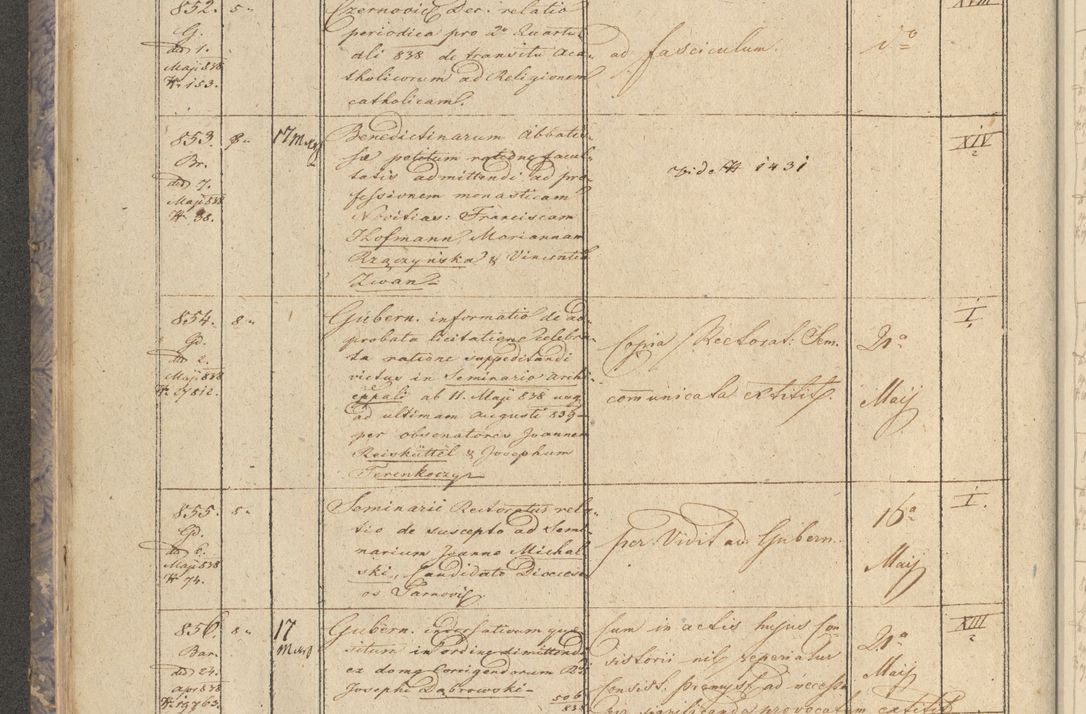 852. 8.
G.
dto 1.
Maji 838
N. 153.
Czernovic Dec. relatio
periodica pro 2o Quartali
838 de transitu Aca-
tholicorum ad Religionem
catholicam.
ad fasciculum.
XVIII
853. 8.
Br.
dto 7.
Maji 838
N. 38.
17 Maji
Benedictinarum Abbatis-
sæ petitum ratione facul-
tatis admittendi ad pro-
fessionem monasticam
Novitias: Franciscam
Hofmann, Mariannam
Rzączyńska & Vincentiam
Zwan
vide N 1431
XIV
854. 8.
Gd.
dto 2.
Maji 838
Gubern. informatio de ap-
probata licitatione celebra-
ta ratione suppeditandi
victus in Seminario Archi-
eppali ab 11. Maji 838 usq
ad ultimam Augusti 839
per obsonatores Joannem
Reisküttel & Josephum
Terenkoczy
Copia Rectorat: Sem.
comunicata extitit.
2a
Maij
I.
855. 8.
Gd.
dto 6.
Maji 838
N 74.
Seminarii Rectoratus rela-
tio de suscepto ad Semi-
narium Joanne Michal-
ski, Candidato Dioeces-
os Tarnovi
per Vidit ad Gubern.
16a
Maij
I.
856. 8.
Bar.
dto 24.
Apr 838
N. 19763.
17
Maij
Gubern.
situm in ordine dimittendi
ex domo Corrigendorum Rdi
Josephi Dabrowski
506
838
Cum in actis hujus Con-
sistorii nil reperiatur
Consist. Premysl. ad necesse
provocatum extitit
21a
Maij
XIII